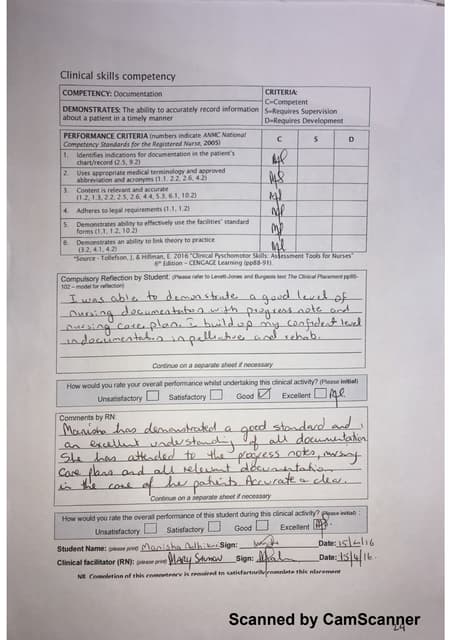 Clinical skills competency
COMPETENCY: Documentation
CRITERIA:
C=Competent
DEMONSTRATES: The ability to accurately record information about a patient in a timely manner
S=Requires Supervision
D=Requires Development
PERFORMANCE CRITERIA (numbers indicate ANMC National Competency Standards for the Registered Nurse, 2005)
C S D
1. Identifies indications for documentation in the patient's chart/record (2.5, 9.2)
2. Uses appropriate medical terminology and approved abbreviation and acronyms (1.1, 2.2, 2.6, 4.2)
3. Content is relevant and accurate
(1.2, 1.3, 2.2, 2.5, 2.6, 4.4, 5.3, 6.1, 10.2)
4. Adheres to legal requirements (1.1, 1.2)
5. Demonstrates ability to effectively use the facilities' standard forms (1.1, 1.2, 10.2)
6. Demonstrates an ability to link theory to practice
(3.2, 4.1, 4.2)
*Source - Tollefson, J. & Hillman, E. 2016 "Clinical Pyschomotor Skills: Assessment Tools for Nurses"
6th Edition – CENGAGE Learning (pp88-91).
Compulsory Reflection by Student: (Please refer to Levett-Jones and Burgess text The Clinical Placement pp85-
102 – model for reflection)
I was able to demonstrate a good level of
nursing documentation with progress note and
nursing care plan. I build up my confident level
in documentation in pallative and rehab.
Continue on a separate sheet if necessary
How would you rate your overall performance whilst undertaking this clinical activity? (Please initial)
Unsatisfactory Satisfactory Good Excellent
Comments by RN:
Manisha has demonstrated a good standard and
an excellent understanding of all documentation
She has attended to the progress notes, nursing
Care plans and all relevant documentation
in the care of her patients. Accurate & clear.
Continue on a separate sheet if necessary
How would you rate the overall performance of this student during this clinical activity? (Please initial)
Unsatisfactory Satisfactory Good Excellent
Student Name: (please print) Manisha Sign: Date: 15/4/16
Clinical facilitator (RN): (please print) MARY Sign: Date: 15/4/16.
NB. Completion of this competency is required to satisfactorily complete this placement
Scanned by CamScanner